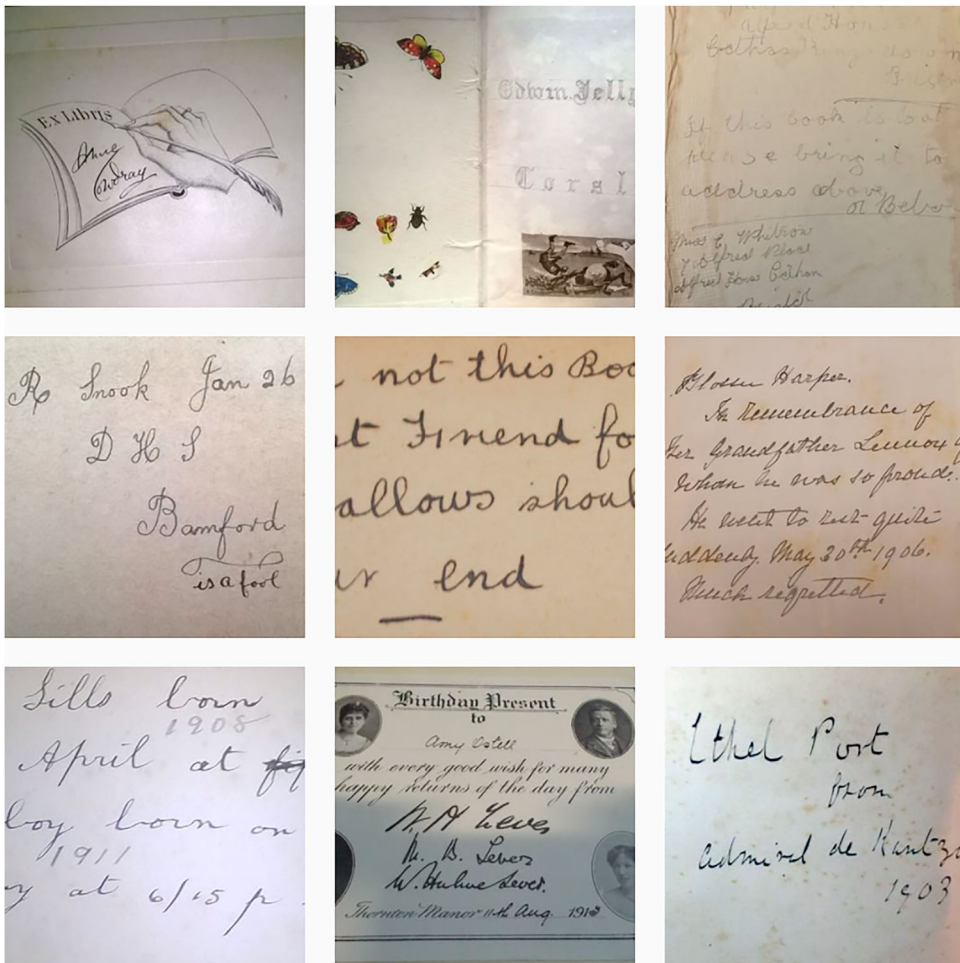 Ex Libris
Anne
Cowdray
Edwin. Jelly
Corsl
Alfred
If this book is lost
please bring it to
address above
or Below
Miss E Whitrow
7 Alfred Place
Alfred
R Snook Jan 26
D H S
Bamford
is a fool
not this Boo
st Friend fo
allows shoul
ur end
Harper.
In Remembrance of
her Grandfather Lennox of
Whom he was so proud.
He went to rest quite
suddenly. May 20th 1906.
Much regretted.
Sills born
1908
April at
boy born on
1911
y at 6/15 p
Birthday Present
to
Amy Ostell
with every good wish for many
happy returns of the day from
W. H. Lever
M. B. Lever
W. Hulme Lever.
Thornton Manor 11th Aug. 1912
Ethel Port
from
Admiral de Kantzo
1903